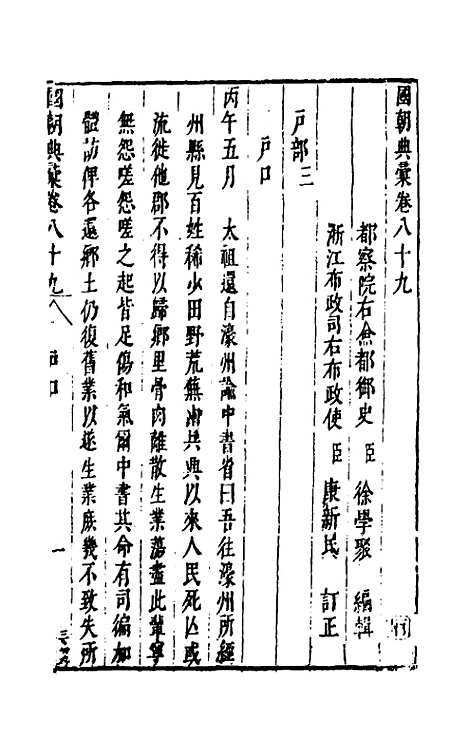 國朝典彙卷八十九
都察院右僉都御史臣徐學聚編輯
浙江布政司右布政使臣康新民訂正
戶部三
戶口
丙午五月 太祖還自濠州諭中書省曰吾往濠州所經
州縣見百姓稀少田野荒蕪由兵興以來人民死亡或
流徙他郡不得以歸鄉里骨肉離散生業蕩盡此輩寧
無怨嗟怨嗟之起皆足傷和氣爾中書其命有司徧加
體訪俾各還鄉土仍復舊業以遂生業庶幾不致失所
國朝典彙卷八十九 戶口 一